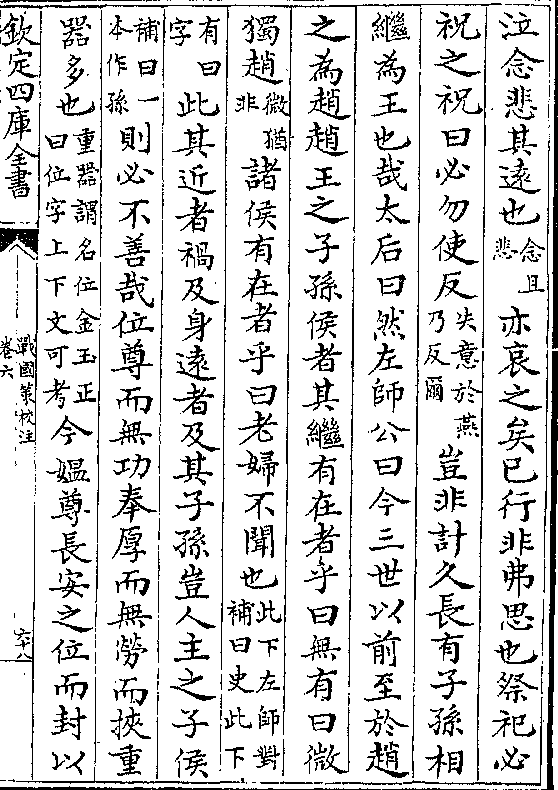 泣念悲其遠也念且悲亦哀之矣已行非弗思也祭祀必
祝之祝曰必勿使反失意於燕乃反爾豈非計久長有子孫相
繼為王也哉太后曰然左師公曰今三世以前至於趙
之為趙趙王之子孫侯者其繼有在者乎曰無有曰微
獨趙微猶非諸侯有在者乎曰老婦不聞也此下左師對補曰史此下
有曰字此其近者禍及身遠者及其子孫豈人主之子侯
補曰一本作孫則必不善哉位尊而無功奉厚而無勞而挾重
器多也重器謂名位金玉正曰位字上下文可考今媼尊長安之位而封以
欽定四庫全書
戰國策校注
卷六
六十八